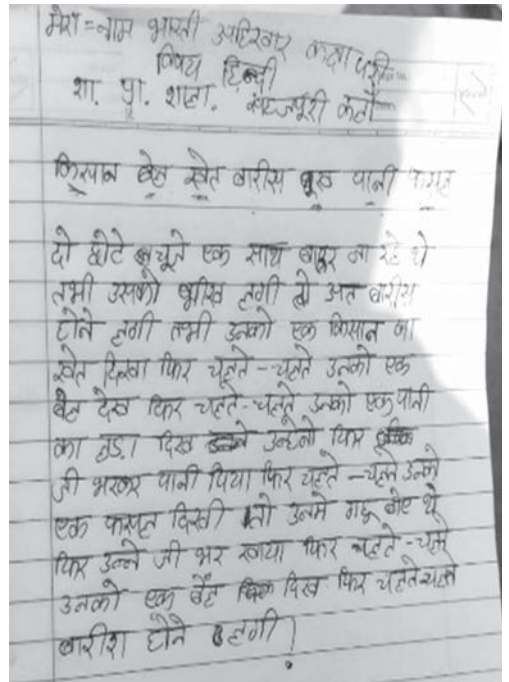 मेरा = नाम भारती अहिरवार कक्षा 5वी
विषय हिन्दी
शा. प्रा. शाला.
किसान बेल खेत बारीस भुख पानी फसल
दो छोटे चूजे एक साथ बाहर जा रहे थे
तभी उसको भीख लगी तो अत बारीस
होने लगी तभी उनको एक किसान का
खेत दिखा फिर चलते-चलते उनको एक
बेल देख फिर चलते-चलते उनको एक पानी
का हडा दिख उन्हेनो फिर
जी भरकर पानी पिया फिर चलते-चलते उनको
एक फसल दिखी तो उनमे गहू बोए थे
फिर उन्ने जी भर खाया फिर चलते-चलते
उनको एक बैल दिख फिर चलते चलते
बारीश होने लगी!